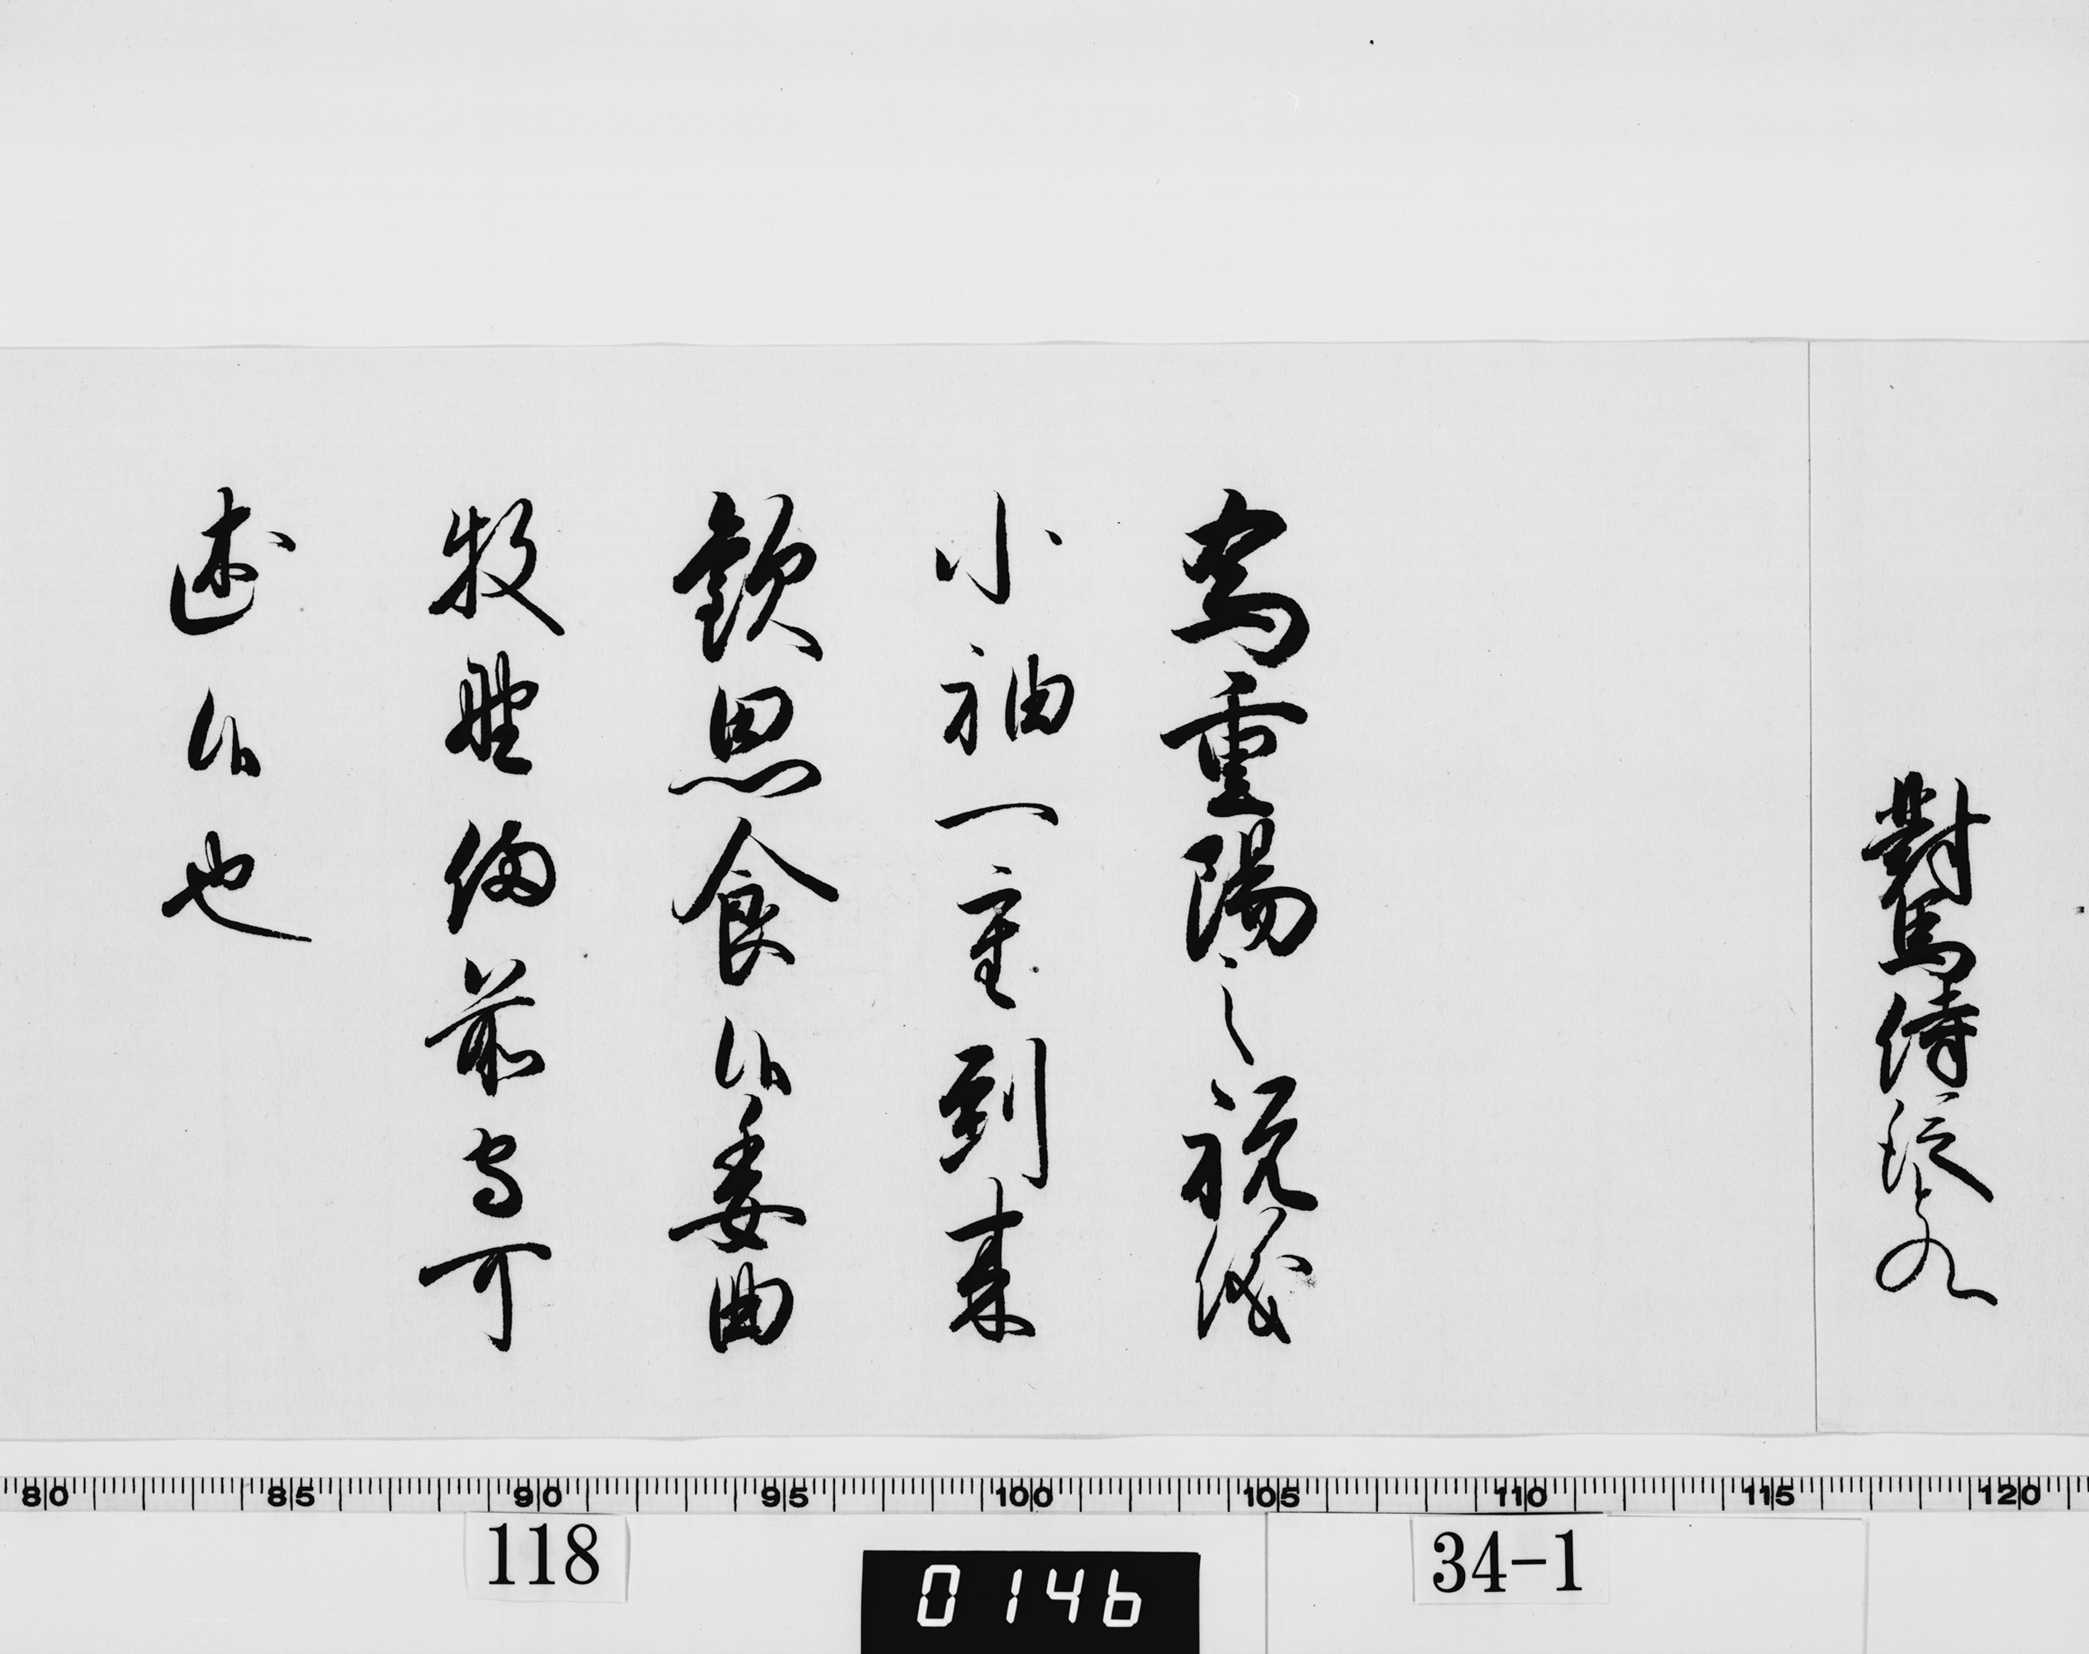 對馬侍従とのへ
為重陽之祝儀
小袖一重到来
歓思食候委曲
牧野備前守可
述候也
80 85 90 95 100 105 110 115 120
118
0146
34-1